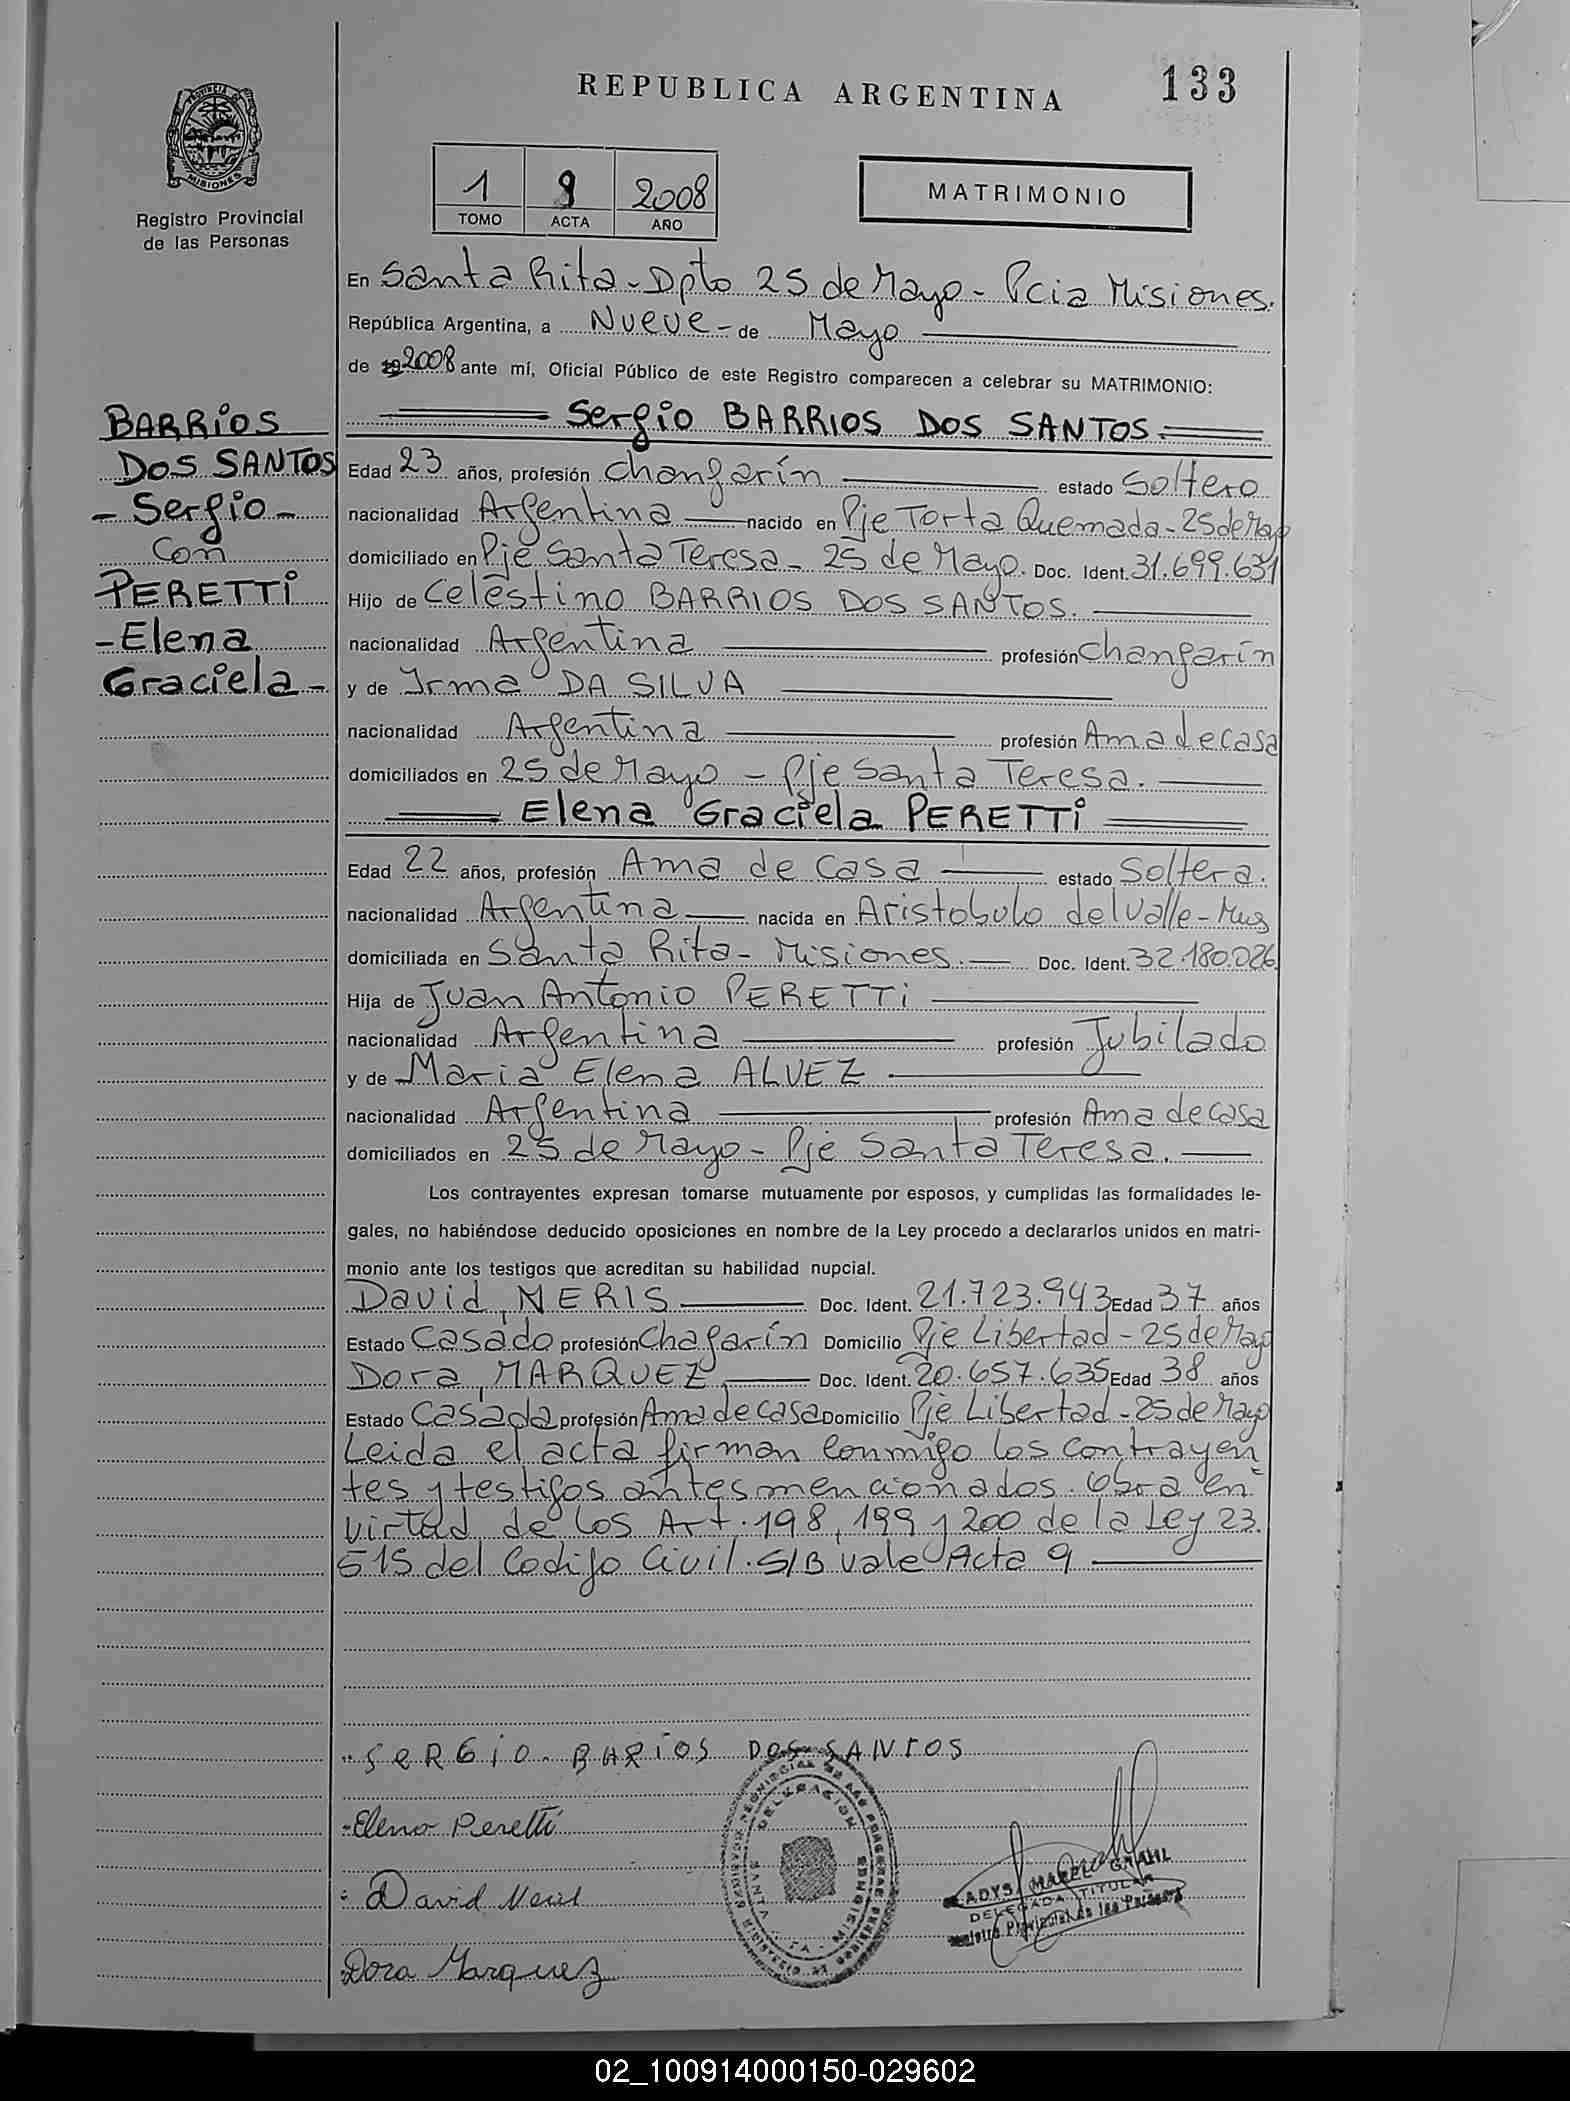 REPUBLICA ARGENTINA
133
PROVINCIA DE
MISIONES
Registro Provincial
de las Personas
1 9 2008
TOMO ACTA AÑO
MATRIMONIO
En Santa Rita - Dpto 25 de Mayo - Pcia Misiones.
República Argentina, a Nueve - de Mayo
de 2008 ante mí, Oficial Público de este Registro comparecen a celebrar su MATRIMONIO:
BARRIOS
DOS SANTOS
- Sergio -
Con
PERETTI
- Elena
Graciela -
Sergio BARRIOS DOS SANTOS.
Edad 23 años, profesión changarín estado Soltero
nacionalidad Argentina nacido en Pje Torta Quemada - 25 de Mayo
domiciliado en Pje Santa Teresa - 25 de Mayo. Doc. Ident. 31.699.631
Hijo de Celestino BARRIOS DOS SANTOS.
nacionalidad Argentina profesión changarín
y de Irma DA SILVA
nacionalidad Argentina profesión Ama de casa
domiciliados en 25 de Mayo - Pje Santa Teresa.
Elena Graciela PERETTI
Edad 22 años, profesión Ama de casa estado Soltera.
nacionalidad Argentina nacida en Aristobulo del Valle -
domiciliada en Santa Rita - Misiones. Doc. Ident. 32.180.026
Hija de Juan Antonio PERETTI
nacionalidad Argentina profesión Jubilado
y de Maria Elena ALVEZ
nacionalidad Argentina profesión Ama de casa
domiciliados en 25 de Mayo - Pje Santa Teresa.
Los contrayentes expresan tomarse mutuamente por esposos, y cumplidas las formalidades le-
gales, no habiéndose deducido oposiciones en nombre de la Ley procedo a declararlos unidos en matri-
monio ante los testigos que acreditan su habilidad nupcial.
David, NERIS Doc. Ident. 21.723.943 Edad 37 años
Estado Casado profesión Chagarín Domicilio Pje Libertad - 25 de Mayo
Dora, MARQUEZ Doc. Ident. 20.657.635 Edad 38 años
Estado Casada profesión Ama de casa Domicilio Pje Libertad - 25 de Mayo
Leida el acta firman conmigo los contrayen
tes y testigos antes mencionados. Obra en
virtud de los Art. 198, 199 y 200 de la Ley 23.
515 del Codigo Civil. S/B vale Acta 9
SERGIO BARIOS DOS SANTOS
Elena Peretti
David Neris
Dora Marquez
DELEGACION
SANTA
MISIONES
GLADYS MABEL GRAHL
DELEGADA TITULAR
Registro Provincial de las Personas
02_100914000150-029602